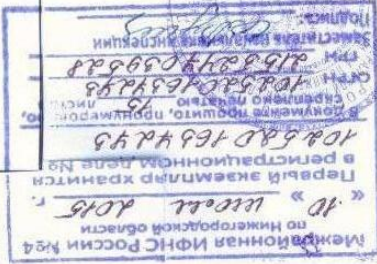 Межрайонная ИФНС России №4
по Нижегородской области
« 10 » июля 2015 г.
Первый экземпляр хранится
в регистрационном деле №
1025201634243
В документе прошито, пронумеровано,
скреплено печатью 15 листа
ОГРН 1025201634243
ГРН 2153247039528
Заместитель начальника инспекции
Подпись: